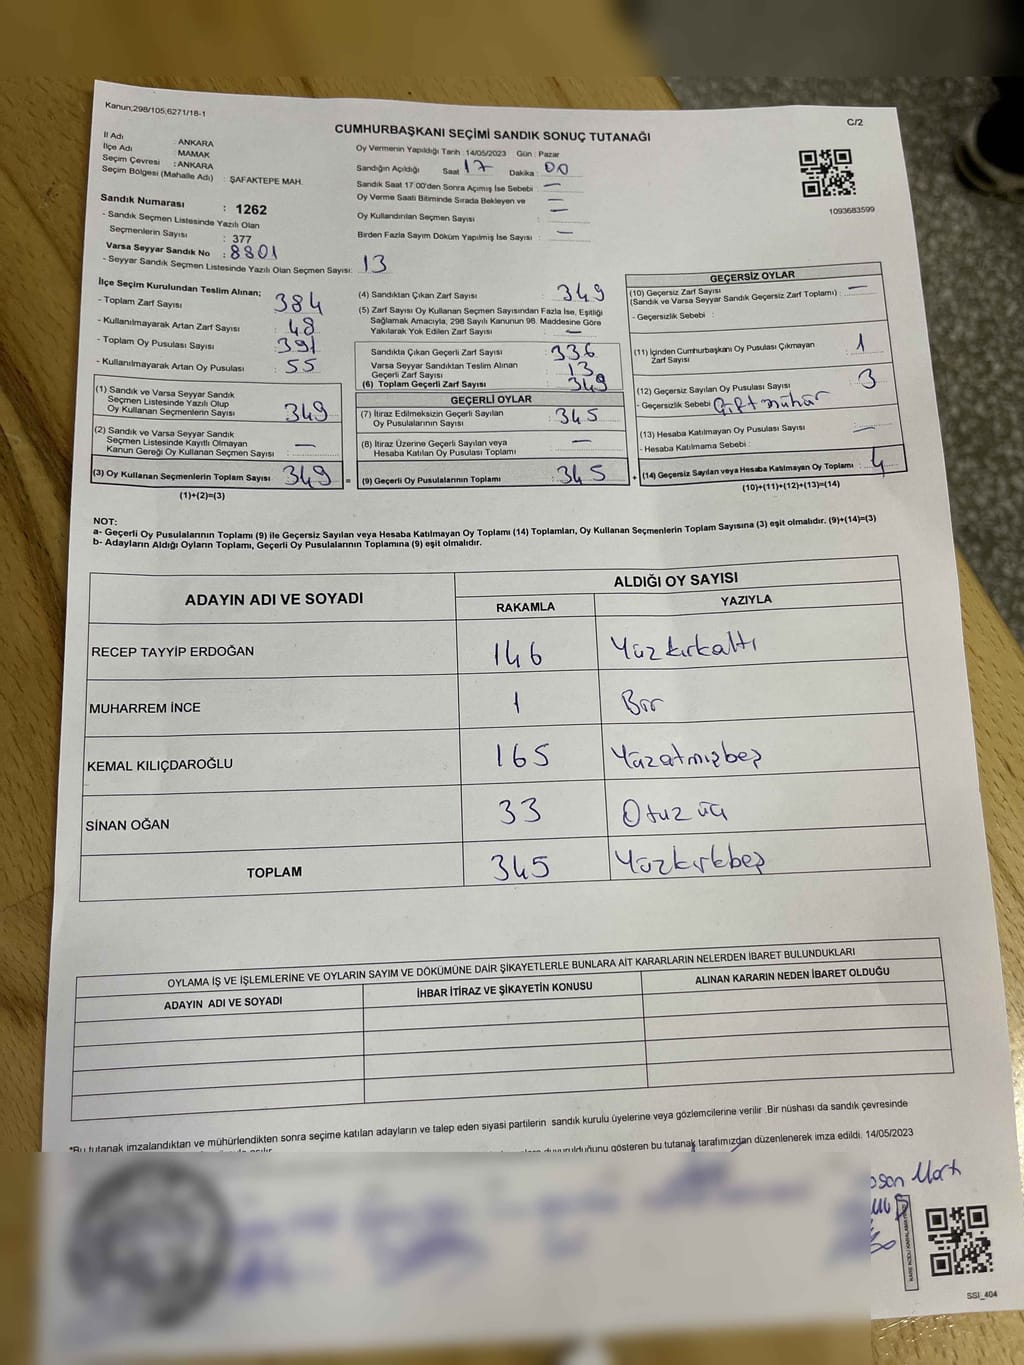 Kanun;298/105,6271/18-1
C/2
CUMHURBAŞKANI SEÇİMİ SANDIK SONUÇ TUTANAĞI
İl Adı : ANKARA
İlçe Adı : MAMAK
Seçim Çevresi : ANKARA
Seçim Bölgesi (Mahalle Adı) : ŞAFAKTEPE MAH.
Sandık Numarası : 1262
- Sandık Seçmen Listesinde Yazılı Olan
Seçmenlerin Sayısı : 377
Varsa Seyyar Sandık No : 8801
- Seyyar Sandık Seçmen Listesinde Yazılı Olan Seçmen Sayısı: 13
Oy Vermenin Yapıldığı Tarih :14/05/2023 Gün : Pazar
Sandığın Açıldığı Saat 17 Dakika : 00
Sandık Saat 17:00'den Sonra Açımış İse Sebebi : —
Oy Verme Saati Bitiminde Sırada Bekleyen ve
Oy Kullandırılan Seçmen Sayısı :
Birden Fazla Sayım Döküm Yapılmış İse Sayısı : —
1093683599
İlçe Seçim Kurulundan Teslim Alınan;
- Toplam Zarf Sayısı : 384
- Kullanılmayarak Artan Zarf Sayısı : 48
- Toplam Oy Pusulası Sayısı : 391
- Kullanılmayarak Artan Oy Pusulası : 55
(1) Sandık ve Varsa Seyyar Sandık
Seçmen Listesinde Yazılı Olup
Oy Kullanan Seçmenlerin Sayısı : 349
(2) Sandık ve Varsa Seyyar Sandık
Seçmen Listesinde Kayıtlı Olmayan
Kanun Gereği Oy Kullanan Seçmen Sayısı : —
(3) Oy Kullanan Seçmenlerin Toplam Sayısı : 349 =
(1)+(2)=(3)
(4) Sandıktan Çıkan Zarf Sayısı : 349
(5) Zarf Sayısı Oy Kullanan Seçmen Sayısından Fazla İse, Eşitliği
Sağlamak Amacıyla, 298 Sayılı Kanunun 98. Maddesine Göre
Yakılarak Yok Edilen Zarf Sayısı : —
Sandıkta Çıkan Geçerli Zarf Sayısı : 336
Varsa Seyyar Sandıktan Teslim Alınan
Geçerli Zarf Sayısı : 13
(6) Toplam Geçerli Zarf Sayısı : 349
GEÇERLİ OYLAR
(7) İtiraz Edilmeksizin Geçerli Sayılan
Oy Pusulalarının Sayısı : 345
(8) İtiraz Üzerine Geçerli Sayılan veya
Hesaba Katılan Oy Pusulası Toplamı : —
(9) Geçerli Oy Pusulalarının Toplamı : 345 +
GEÇERSİZ OYLAR
(10) Geçersiz Zarf Sayısı
(Sandık ve Varsa Seyyar Sandık Geçersiz Zarf Toplamı) : —
- Geçersizlik Sebebi :
(11) İçinden Cumhurbaşkanı Oy Pusulası Çıkmayan
Zarf Sayısı : 1
(12) Geçersiz Sayılan Oy Pusulası Sayısı : 3
- Geçersizlik Sebebi Çift mühür
(13) Hesaba Katılmayan Oy Pusulası Sayısı : —
- Hesaba Katılmama Sebebi :
(14) Geçersiz Sayılan veya Hesaba Katılmayan Oy Toplamı : 4
(10)+(11)+(12)+(13)=(14)
NOT:
a- Geçerli Oy Pusulalarının Toplamı (9) ile Geçersiz Sayılan veya Hesaba Katılmayan Oy Toplamı (14) Toplamları, Oy Kullanan Seçmenlerin Toplam Sayısına (3) eşit olmalıdır. (9)+(14)=(3)
b- Adayların Aldığı Oyların Toplamı, Geçerli Oy Pusulalarının Toplamına (9) eşit olmalıdır.
ADAYIN ADI VE SOYADI ALDIĞI OY SAYISI
RAKAMLA YAZIYLA
RECEP TAYYİP ERDOĞAN 146 Yüzkırkaltı
MUHARREM İNCE 1 Bir
KEMAL KILIÇDAROĞLU 165 Yüzatmışbeş
SİNAN OĞAN 33 Otuz üç
TOPLAM 345 Yüzkırkbeş
OYLAMA İŞ VE İŞLEMLERİNE VE OYLARIN SAYIM VE DÖKÜMÜNE DAİR ŞİKAYETLERLE BUNLARA AİT KARARLARIN NELERDEN İBARET BULUNDUKLARI
ADAYIN ADI VE SOYADI İHBAR İTİRAZ VE ŞİKAYETİN KONUSU ALINAN KARARIN NEDEN İBARET OLDUĞU
*Bu tutanak imzalandıktan ve mühürlendikten sonra seçime katılan adayların ve talep eden siyasi partilerin sandık kurulu üyelerine veya gözlemcilerine verilir .Bir nüshası da sandık çevresinde
duyurulduğunu gösteren bu tutanak tarafımızdan düzenlenerek imza edildi. 14/05/2023
SSI_404